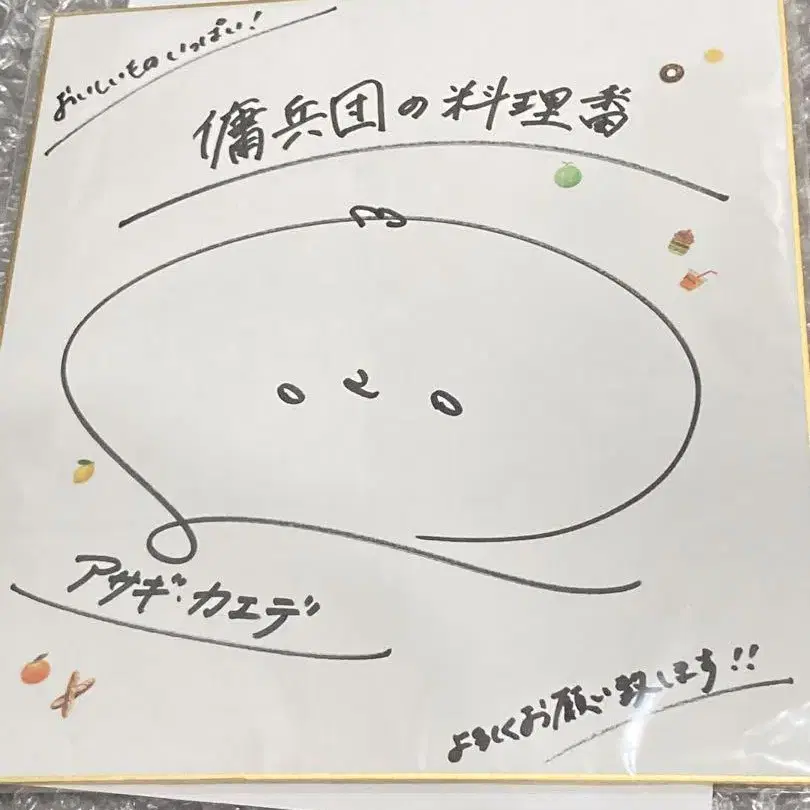 おいしいものいっぱい!
傭兵団の料理番
アサギ・カエデ
よろしくお願い致します!!